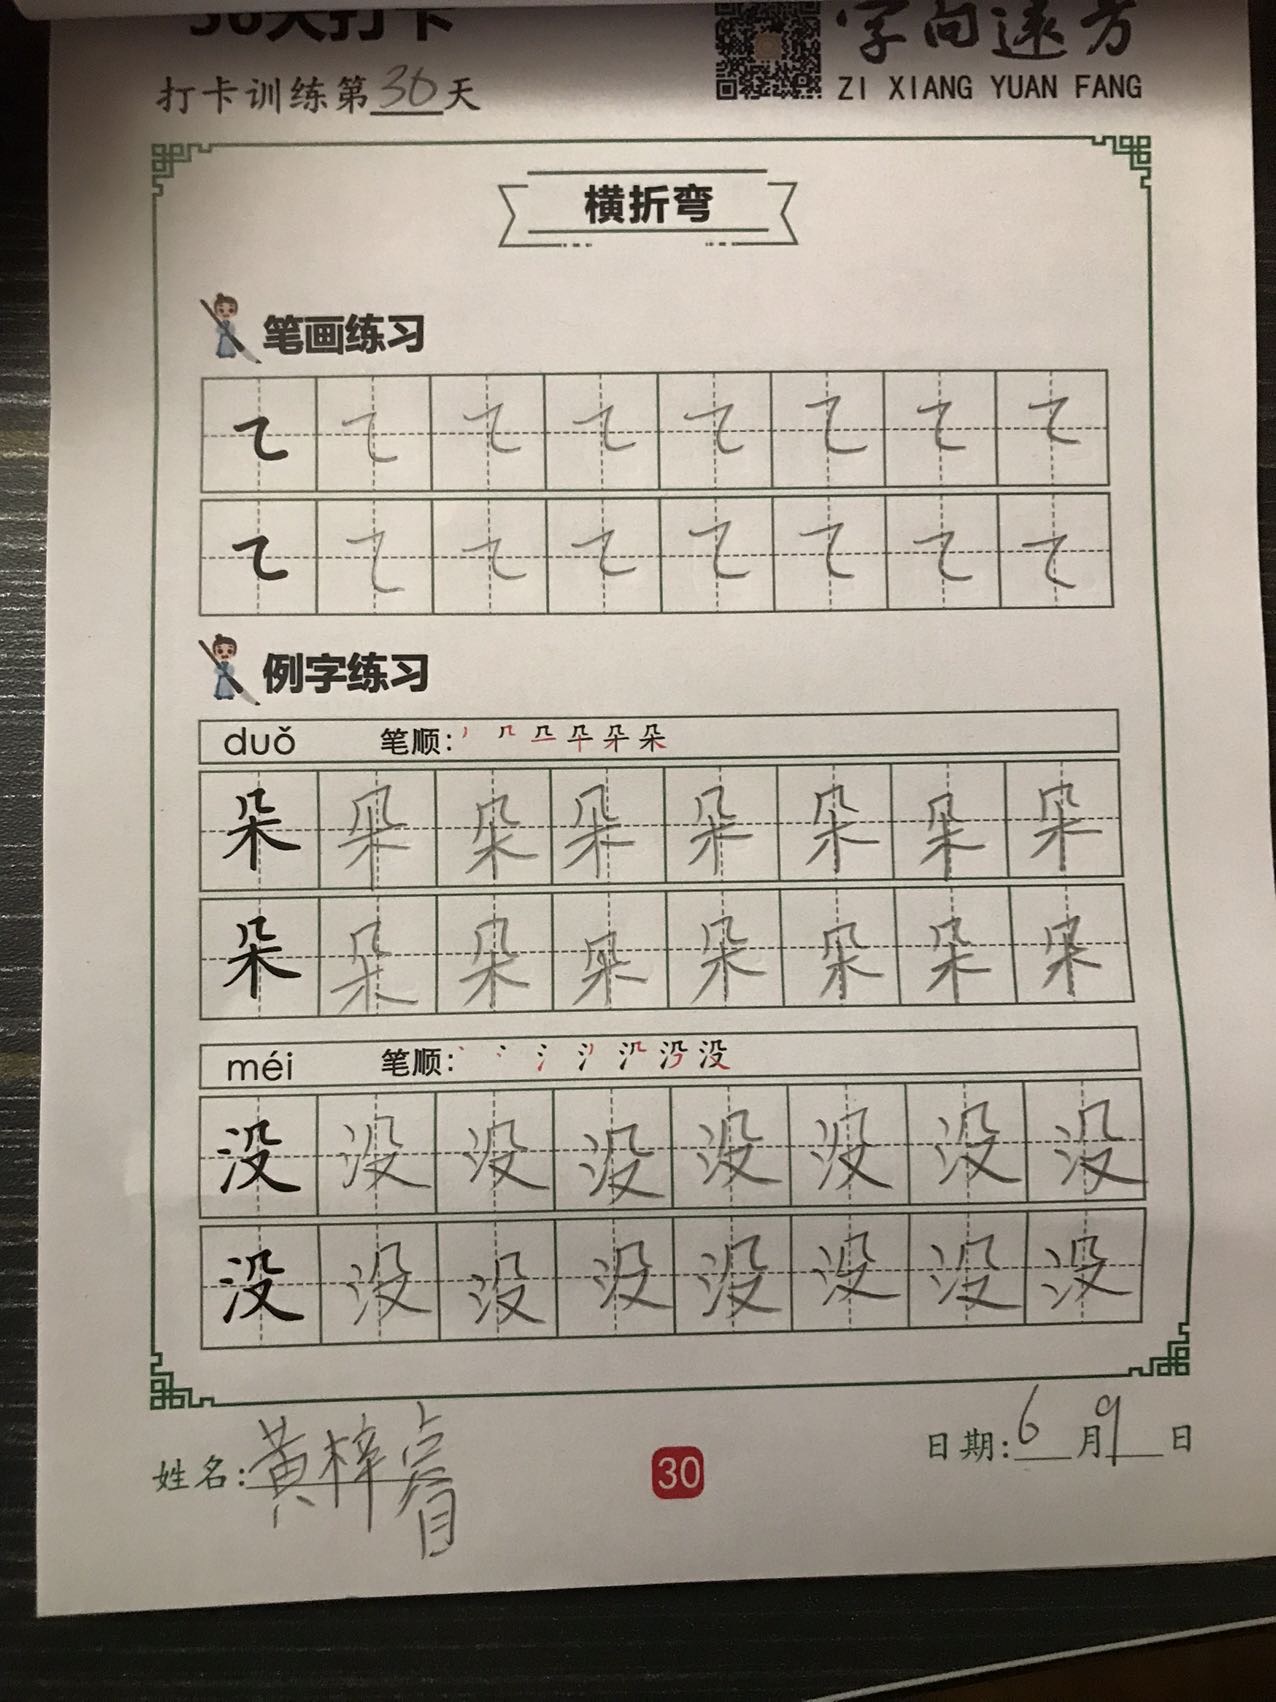 字向远方
打卡训练第30天
ZI XIANG YUAN FANG
横折弯
笔画练习
例字练习
duǒ 笔顺:
朵朵朵朵朵朵朵朵
朵朵朵朵朵朵朵朵
méi 笔顺:
没没没没没没没没
没没没没没没没没
姓名:黄梓睿
30
日期:6月9日